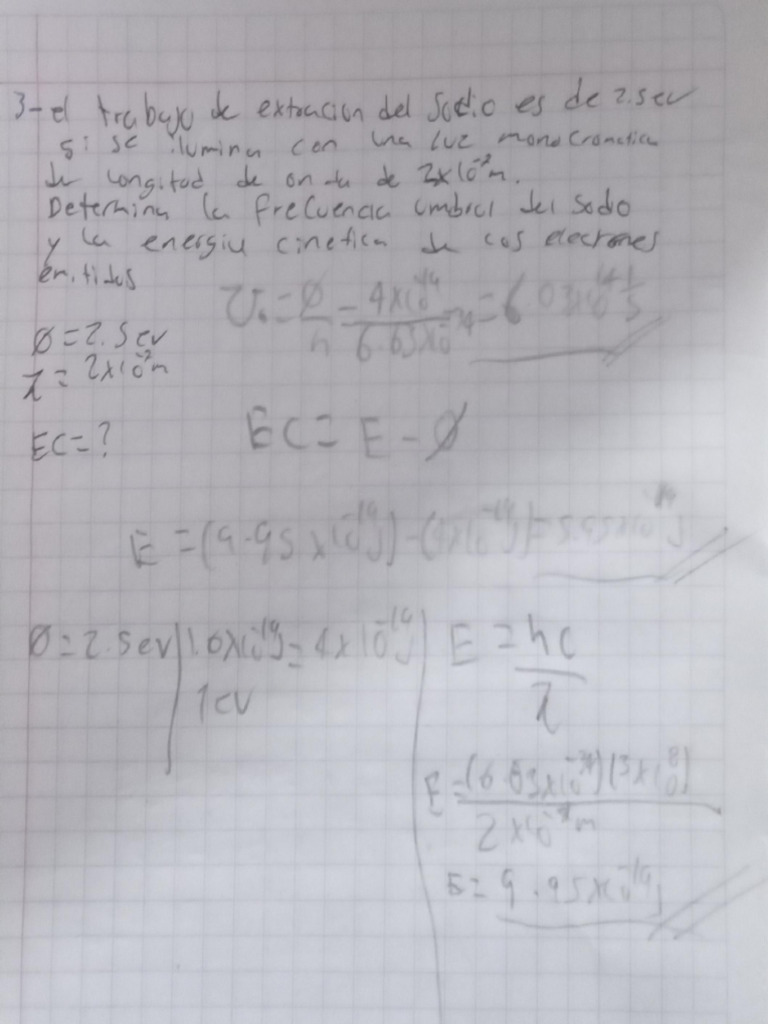 3- el trabajo de extracion del Sodio es de 2.5ev
si se ilumina con una luz monocromatica
de longitud de onda de 2x10⁻⁷m.
Determina la frecuencia umbral del sodio
y la energia cinetica de los electrones
emitidos
υ₀ = Ø/h = 4x10⁻¹⁹/6.63x10⁻³⁴ = 6.03x10¹⁴ 1/s
Ø = 2.5ev
λ = 2x10⁻⁷m
EC = ?
EC = E - Ø
E = (9.95x10⁻¹⁹J) - (4x10⁻¹⁹J) = 5.95x10⁻¹⁹J
Ø = 2.5ev | 1.6x10⁻¹⁹J = 4x10⁻¹⁹J
1ev
E = hc/λ
E = (6.63x10⁻³⁴)(3x10⁸)/2x10⁻⁷m
E = 9.95x10⁻¹⁹J